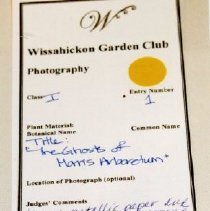 Wissahickon Garden Club
Photography
Class I Entry Number
1
Plant Material:
Botanical Name Common Name
Title:
"The Ghosts of
Morris Arboretum"
Location of Photograph (optional)
Judges' Comments
metallic paper and